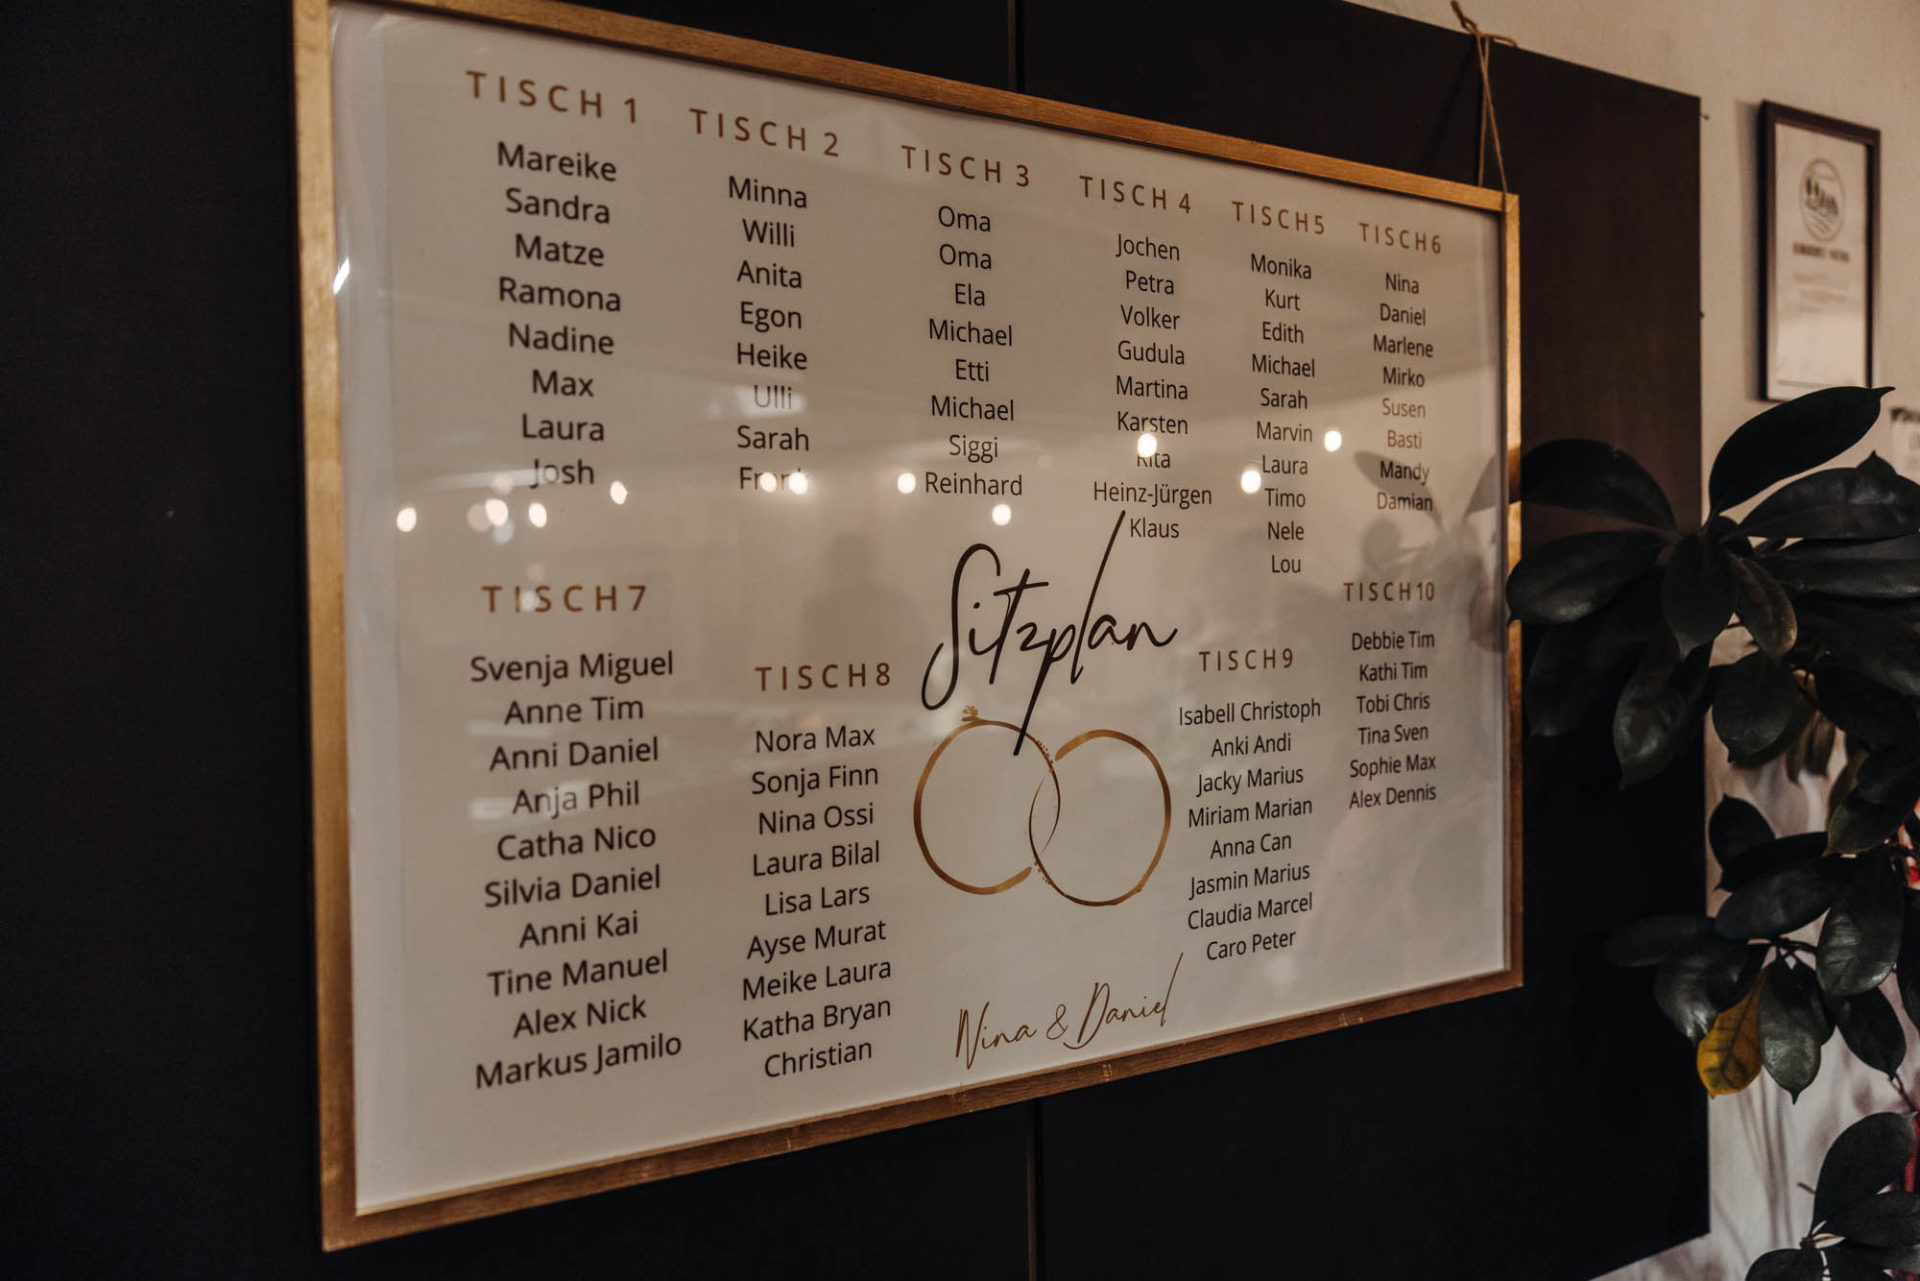 TISCH 1
Mareike
Sandra
Matze
Ramona
Nadine
Max
Laura
Josh
TISCH 2
Minna
Willi
Anita
Egon
Heike
Ulli
Sarah
TISCH 3
Oma
Oma
Ela
Michael
Etti
Michael
Siggi
Reinhard
TISCH 4
Jochen
Petra
Volker
Gudula
Martina
Karsten
Rita
Heinz-Jürgen
Klaus
TISCH5
Monika
Kurt
Edith
Michael
Sarah
Marvin
Laura
Timo
Nele
Lou
TISCH6
Nina
Daniel
Marlene
Mirko
Susen
Basti
Mandy
Damian
Sitzplan
TISCH7
Svenja Miguel
Anne Tim
Anni Daniel
Anja Phil
Catha Nico
Silvia Daniel
Anni Kai
Tine Manuel
Alex Nick
Markus Jamilo
TISCH8
Nora Max
Sonja Finn
Nina Ossi
Laura Bilal
Lisa Lars
Ayse Murat
Meike Laura
Katha Bryan
Christian
TISCH9
Isabell Christoph
Anki Andi
Jacky Marius
Miriam Marian
Anna Can
Jasmin Marius
Claudia Marcel
Caro Peter
TISCH10
Debbie Tim
Kathi Tim
Tobi Chris
Tina Sven
Sophie Max
Alex Dennis
Nina & Daniel